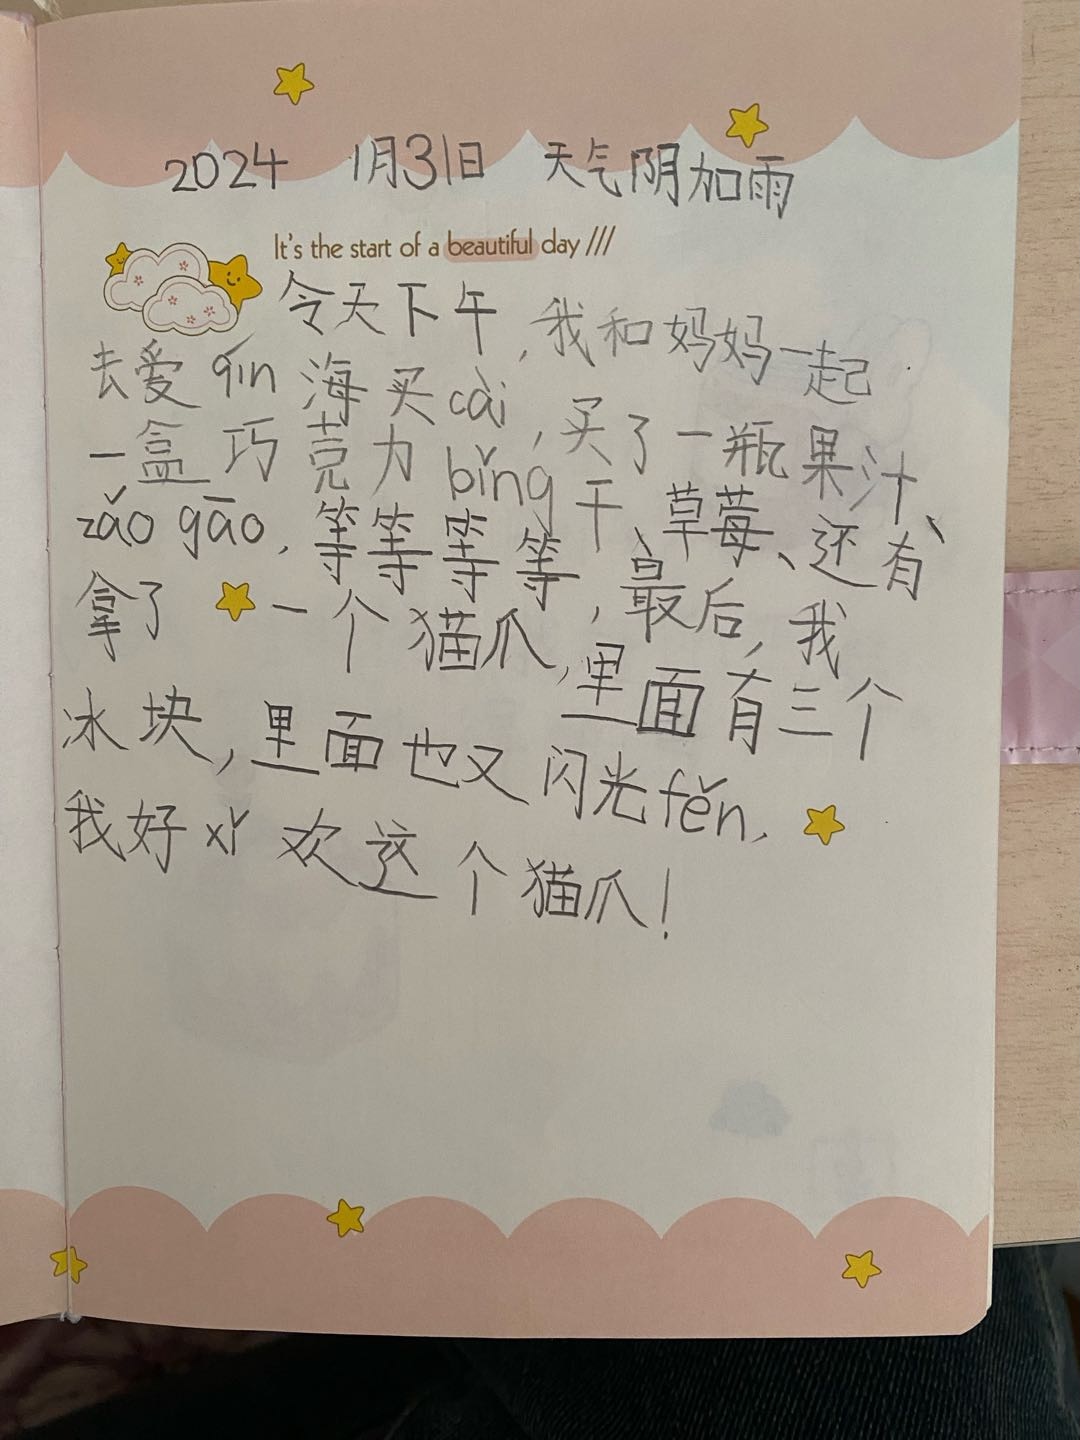 2024 1月31日 天气阴加雨
It's the start of a beautiful day ///
今天下午，我和妈妈一起
去爱qín海买cài，买了一瓶果汁、
一盒巧克力bǐng干、草莓、还有
zǎo gāo，等等等等，最后，我
拿了一个猫爪，里面有三个
冰块，里面也又闪光fěn，
我好xǐ欢这个猫爪！